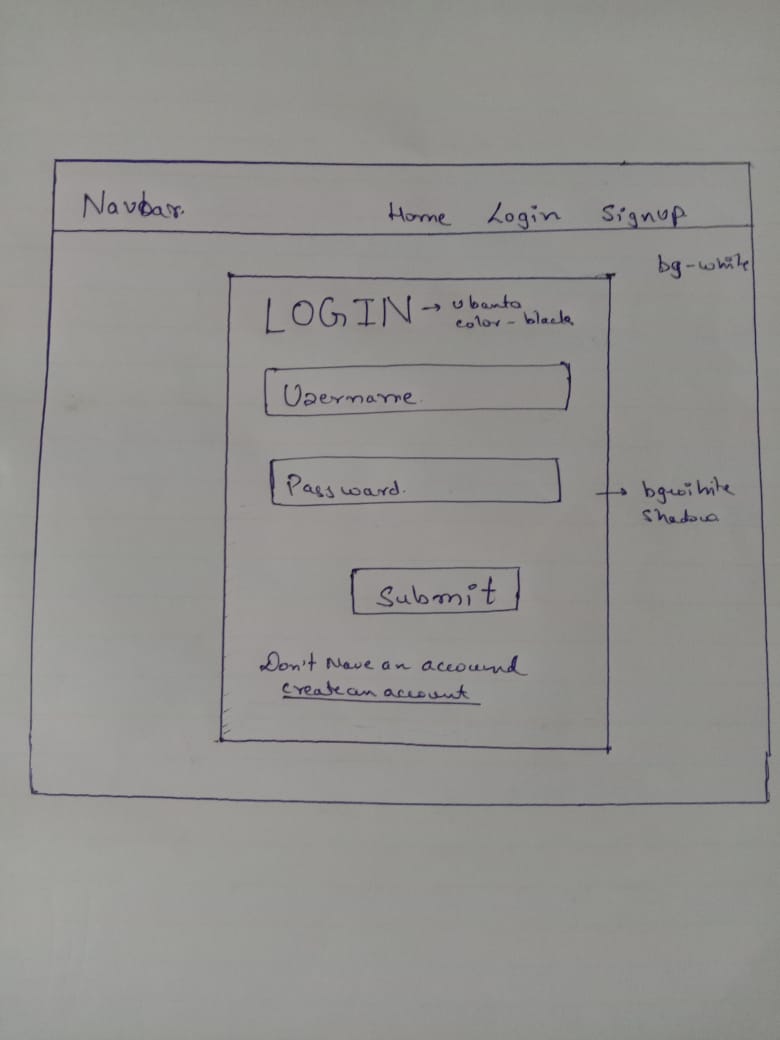 Navbar.
Home Login Signup
bg-white
LOGIN → Ubanto
color-black
Username.
Password.
bgwihite
shadow
Submit
Don't have an account
create an account